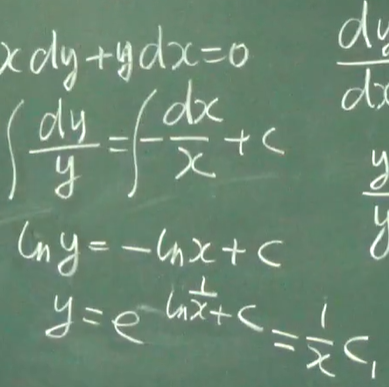 xdy+ydx=0
∫dy/y=∫-dx/x+c
ln y=-ln x+c
y=e^(ln 1/x+c)=1/x c₁
dy/dx
y/y